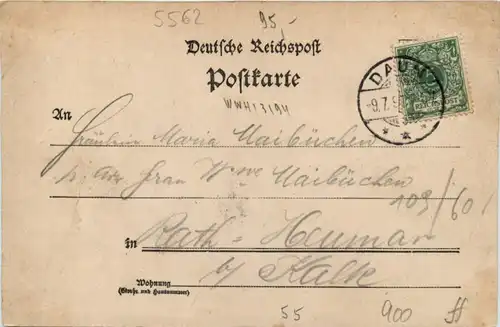 5562
95,-
Deutsche Reichspost
Postkarte
DAUN
-9.7.9
WWH13/94
An
Fräulein Maria Maibüchen
Frau Wwe Maibüchen
109/60
in Rath-Heumar
b/ Kalk
Wohnung
(Straße und Hausnummer)
55
900